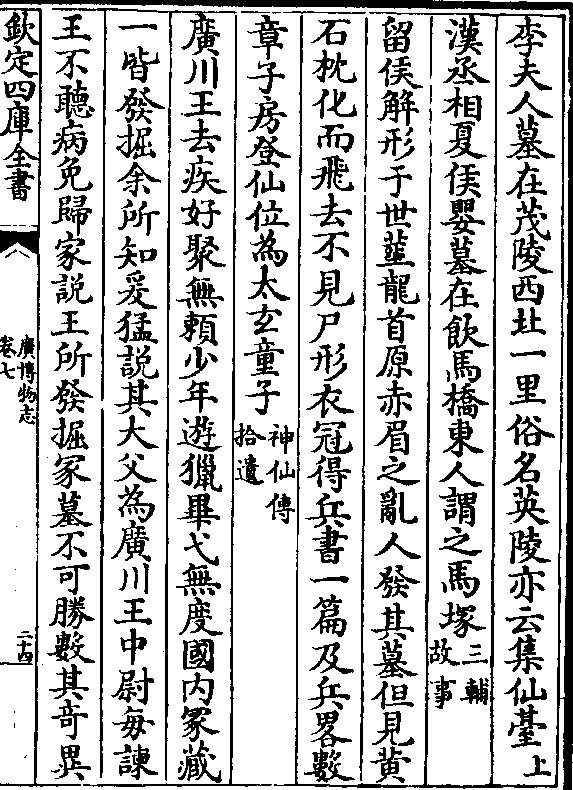 李夫人墓在茂陵西北一里俗名英陵亦云集仙臺上
漢丞相夏侯嬰墓在飲馬橋東人謂之馬塚三輔
故事
留侯解形于世塟龍首原赤眉之亂人發其墓但見黄
石枕化而飛去不見尸形衣冠得兵書一篇及兵畧數
章子房登仙位為太玄童子神仙傳
拾遺
廣川王去疾好聚無頼少年遊獵畢弋無度國内冢藏
一皆發掘余所知爰猛説其大父為廣川王中尉毎諫
王不聽病免歸家説王所發掘冢墓不可勝數其奇異
欽定四庫全書
廣博物志
卷七
二十四